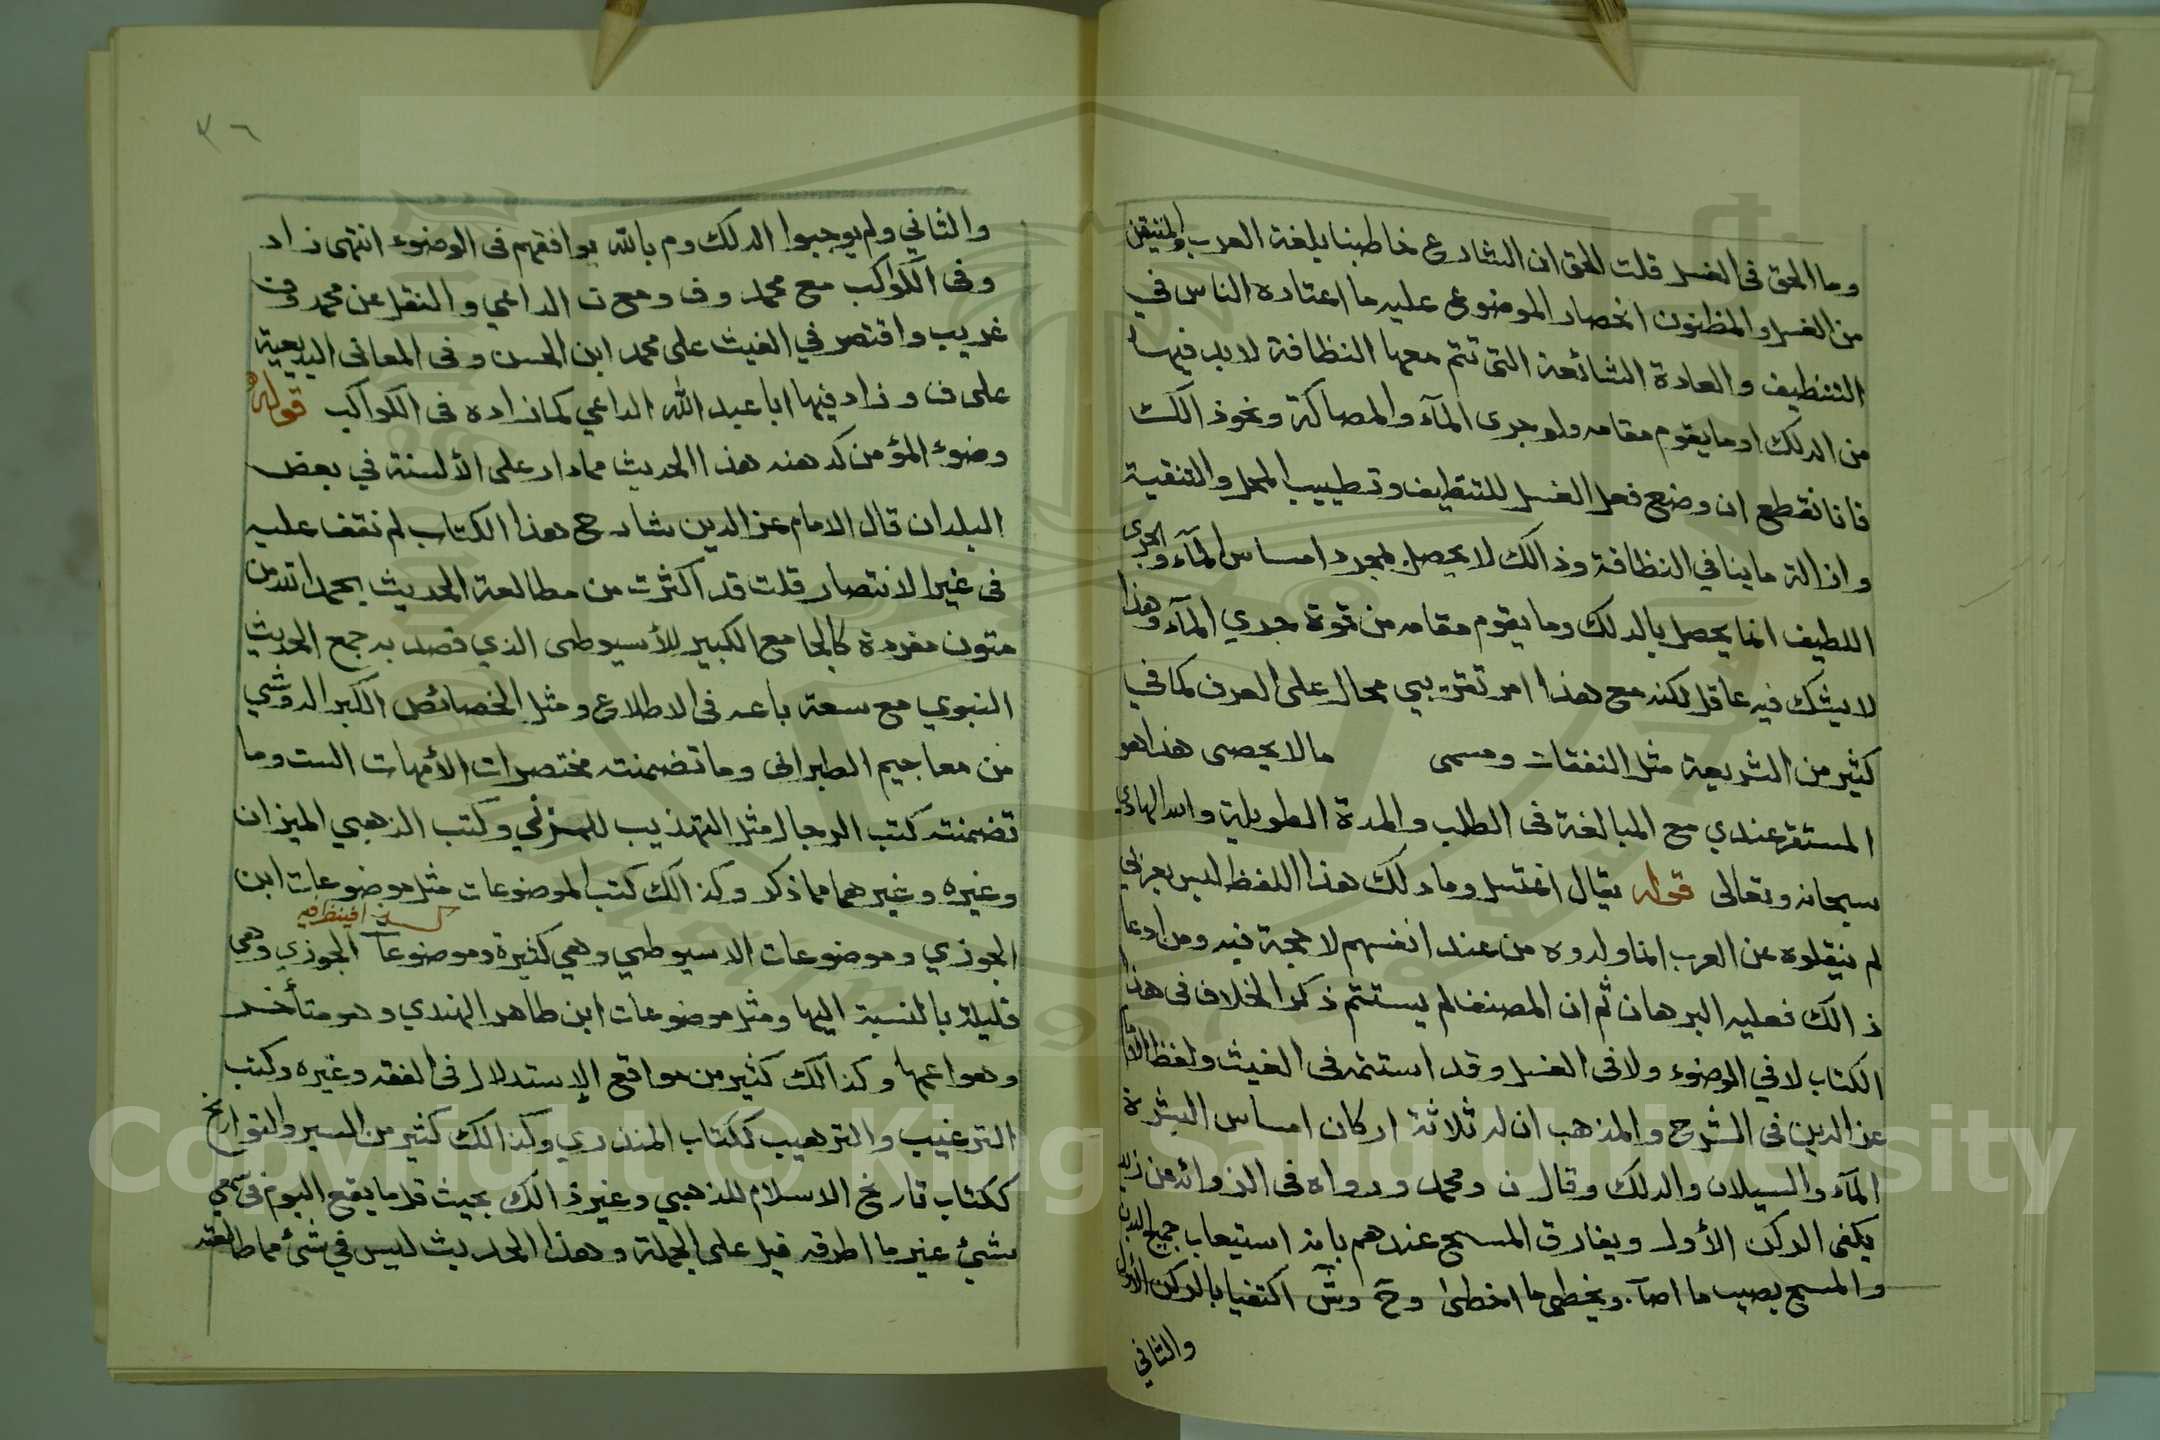 وما الحق في الغسل قلت الحق ان الشارع خاطبنا بلغة العرب والمتيقن
من الغسل والمظنون انحصار الموضوع عليه ما اعتاده الناس في
التنظيف والعادة الشائعة التي تتم معها النظافة لابد فيها
من الدلك او ما يقوم مقامه ولو جرى المآء والمصاكة ونحو ذالك
فانا نقطع ان وضع فعل الغسل للتنظيف وتطييب المحل والتنقية
وازالة ما ينافي النظافة وذالك لا يحصل بمجرد امساس المآء والجرى
اللطيف انما يحصل بالدلك وما يقوم مقامه من قوة جري المآء وهذا
لا يشك فيه عاقل لكنه مع هذا امر تقريبي محال على العرف كما في
كثير من الشريعة مثل النفقات ومسمى ما لا يحصى هذا هو
المستقر عندي مع المبالغة في الطلب والمدة الطويلة والله الهادي
سبحانه وتعالى قوله يقال اغتسل وما دلك هذا اللفظ ليس بعربي
لم ينقلوه عن العرب انما ولدوه من عند انفسهم لا حجة فيه ومن ادعا
ذالك فعليه البرهان ثم ان المصنف لم يستتم ذكر الخلاف في هذا
الكتاب لا في الوضوء ولا في الغسل وقد استتمه في الغيث ولفظ الامام
عز الدين في الشرح والمذهب ان له ثلاثة اركان امساس البشرة
المآء والسيلان والدلك وقال ن ومحمد ورواه في الزوائد من زيد
يكفى الركن الأول ويفارق المسح عندهم بانه استيعاب جميع البدن
والمسح يصيب ما اصآ. ويخطى ما اخطى وح وش اكتفيا بالركن الأول
والثاني
٣٦
والثاني ولم يوجبوا الدلك وم بالله يوافقهم في الوضوء انتهى زاد
وفى الكواكب مع محمد وف ومع ن الداعي والنقل عن محمد وف
غريب واقتصر في الغيث على محمد ابن الحسن وفى المعانى البديعية
على ف وزاد فيها ابا عبد الله الداعي كما زاده في الكواكب قوله
وضوء المؤمن كدهنه هذا الحديث مما دار على الألسنة في بعض
البلدان قال الامام عز الدين شارح هذا الكتاب لم نقف عليه
فى غير الانتصار قلت قد اكثرت من مطالعة الحديث بحمد الله من
متون مفردة كالجامع الكبير للأسيوطى الذي قصد به جمع الحديث
النبوي مع سعة باعه في الاطلاع ومثل الخصائص الكبر الدوشي
من معاجيم الطبرانى وما تضمنته مختصرات الأمهات الست وما
تضمنته كتب الرجال مثل التهذيب للمزني وكتب الذهبي الميزان
وغيره وغيرهما مما ذكر وكذالك كتب الموضوعات مثل موضوعات ابن
الجوزي وموضوعات الاسيوطي وهي كثيرة وموضوعات الجوزي وهى
قليلة بالنسبة اليها ومثل موضوعات ابن طاهر الهندي وهو متأخر
وهو اعمها وكذالك كثير من مواقع الإستدلال في الفقه وغيره وكتب
الترغيب والترهيب ككتاب المنذري وكذالك كثير من السير والتوارخ
ككتاب تاريخ الاسلام للذهبي وغير ذالك بحيث قل ما يقع اليوم في سمعي
شيئ غير ما اطرقه قبل على الجملة وهذا الحديث ليس في شئ مما طالعته
Copyright © King Saud University